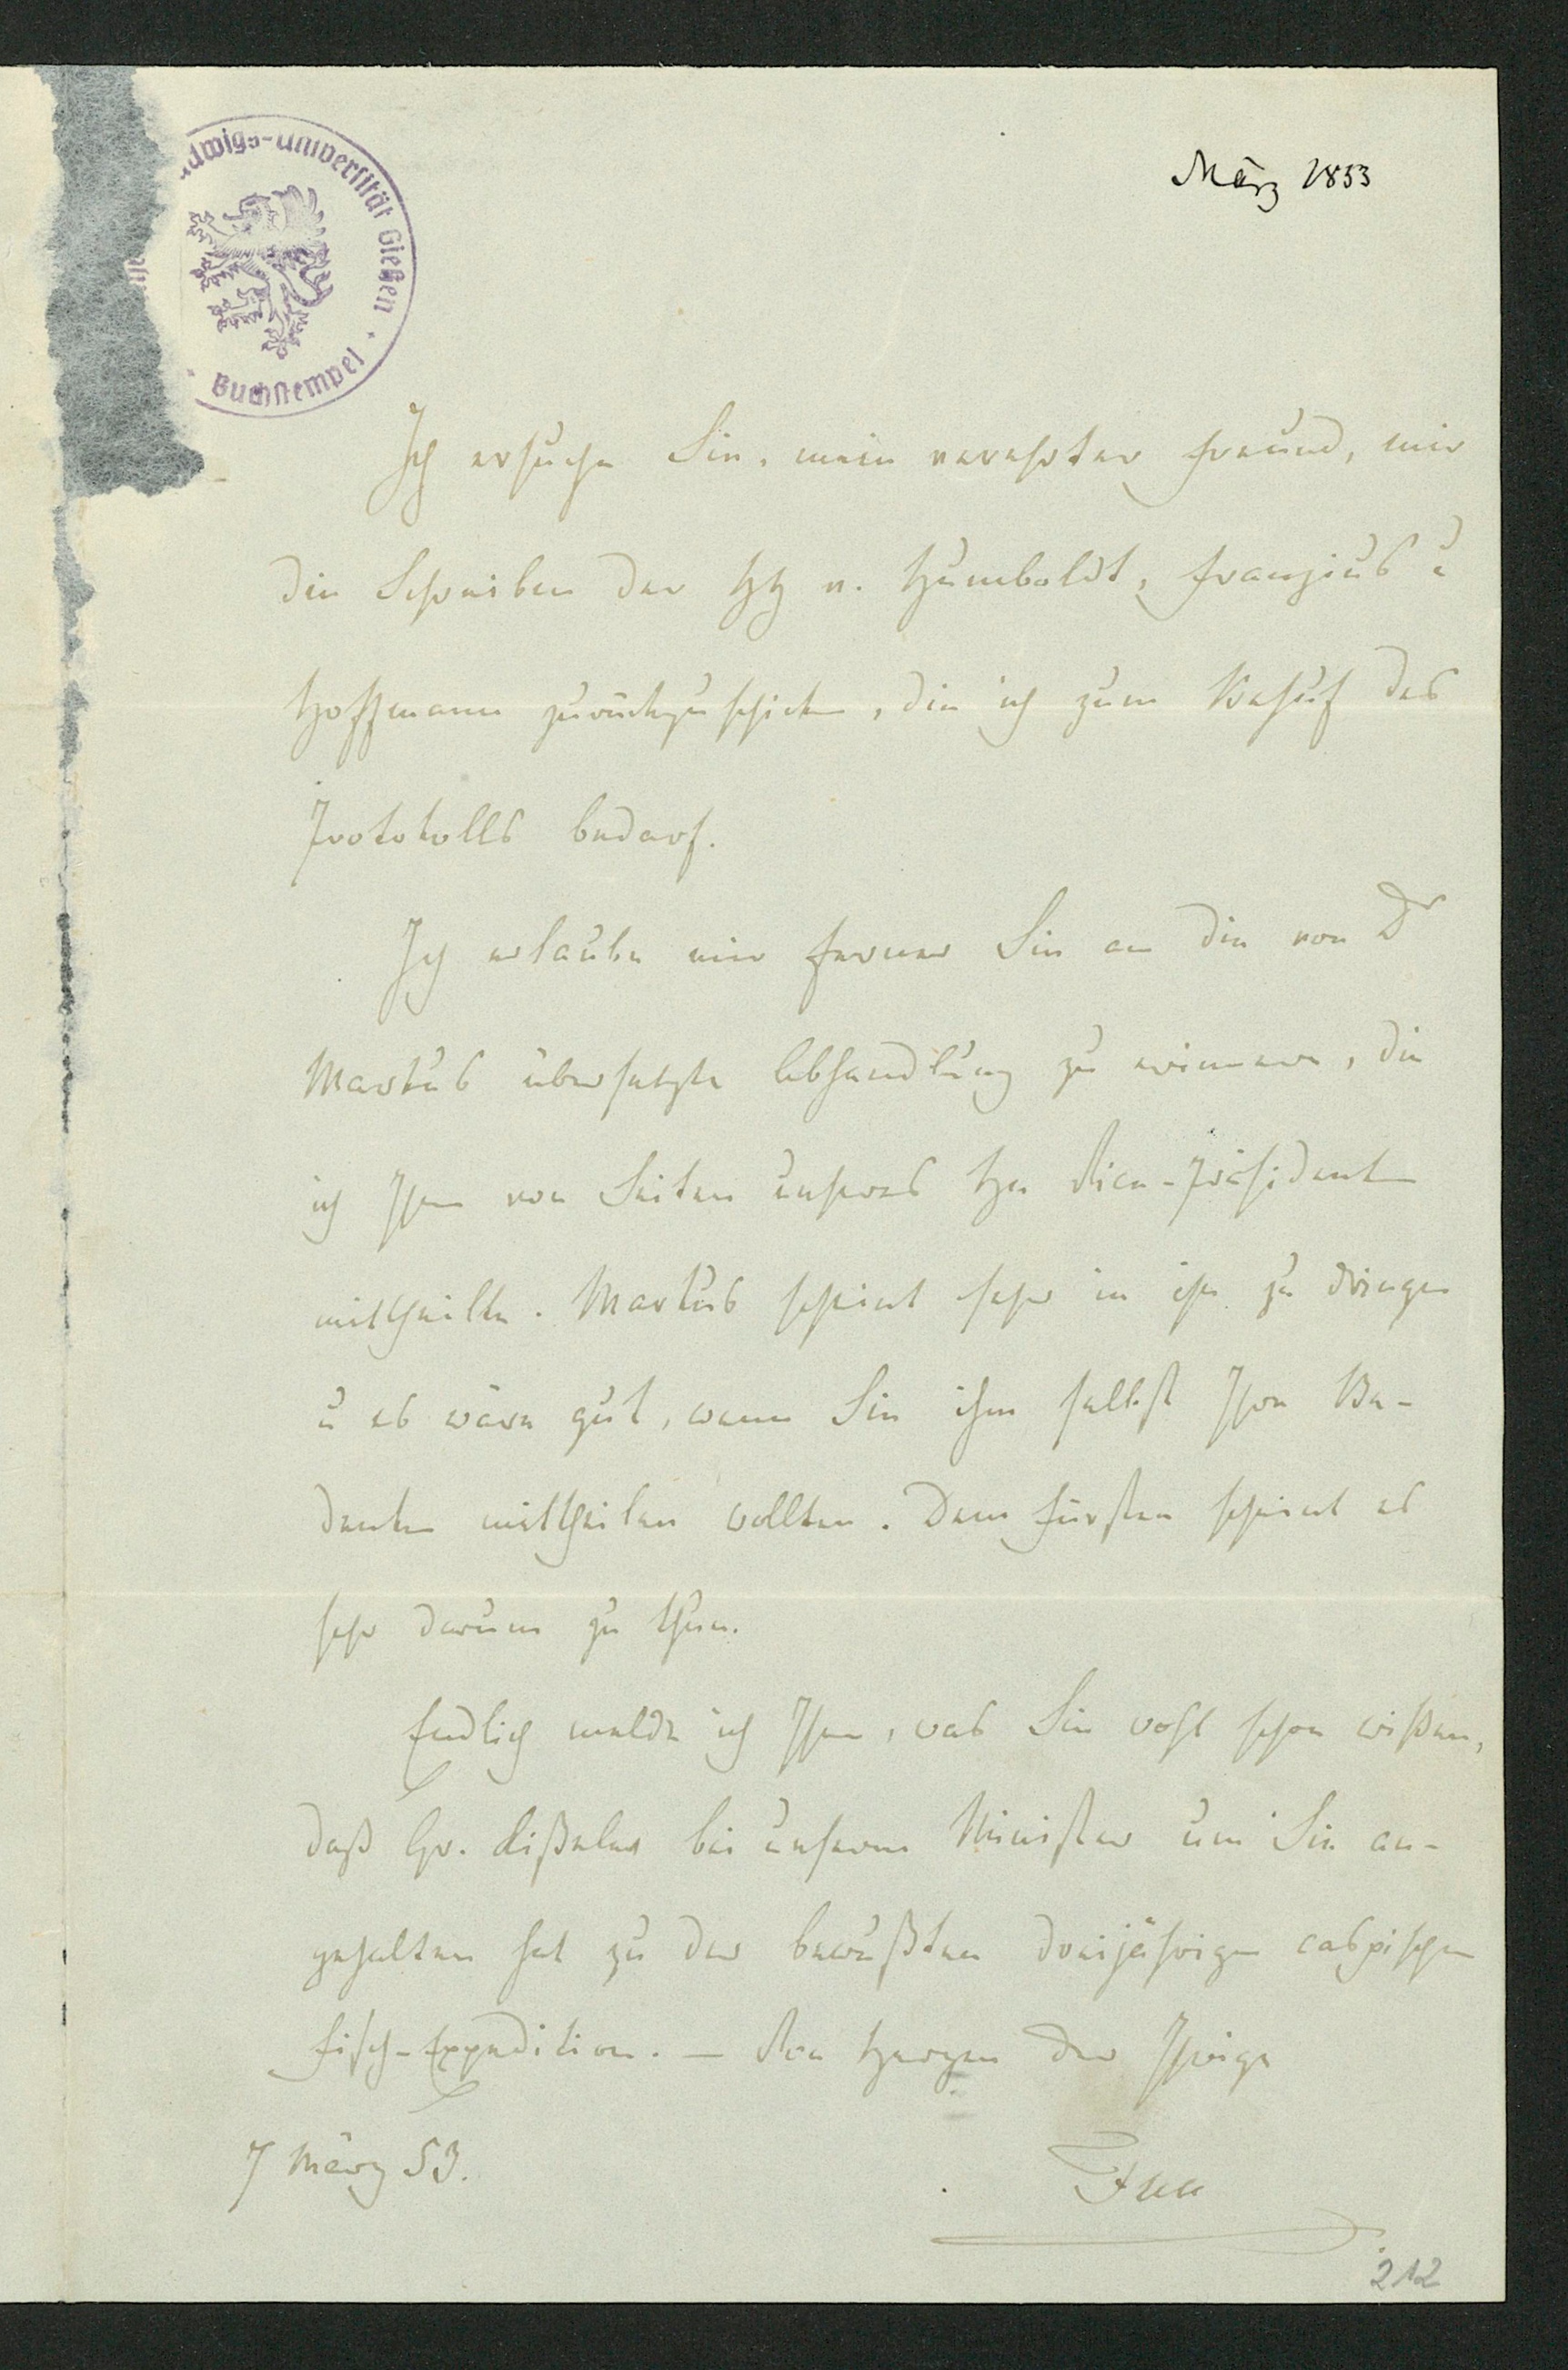 März 1853
udwigs-Universität Gießen
Buchstempel
Ich ersuche Sie, mein verehrter Freund, mir
die Schreiben der HH v. Humboldt, Franzius u
Hoffmann zurückzuschicken, die ich zum Behuf des
Protokolls bedarf.
Ich erlaube mir ferner Sie an die von Dr
Markus übersetzte Abhandlung zu erinnern, die
ich Ihnen von Seiten unseres Hn Vice-Präsidenten
mittheilte. Markus scheint sehr in ihn zu dringen
u es wäre gut, wenn Sie ihm selbst Ihre Be-
denken mittheilen wollten. Dem Fürsten scheint es
sehr darum zu thun.
Endlich melde ich Ihnen, was Sie wohl schon wißen,
daß Gr. Kißelew bei unserem Minister um Sie an-
gehalten hat zu der bewußten dreijährigen caspischen
Fisch-Expedition. — Von Herzen der Ihrige
7 März 53.
Fuss
212